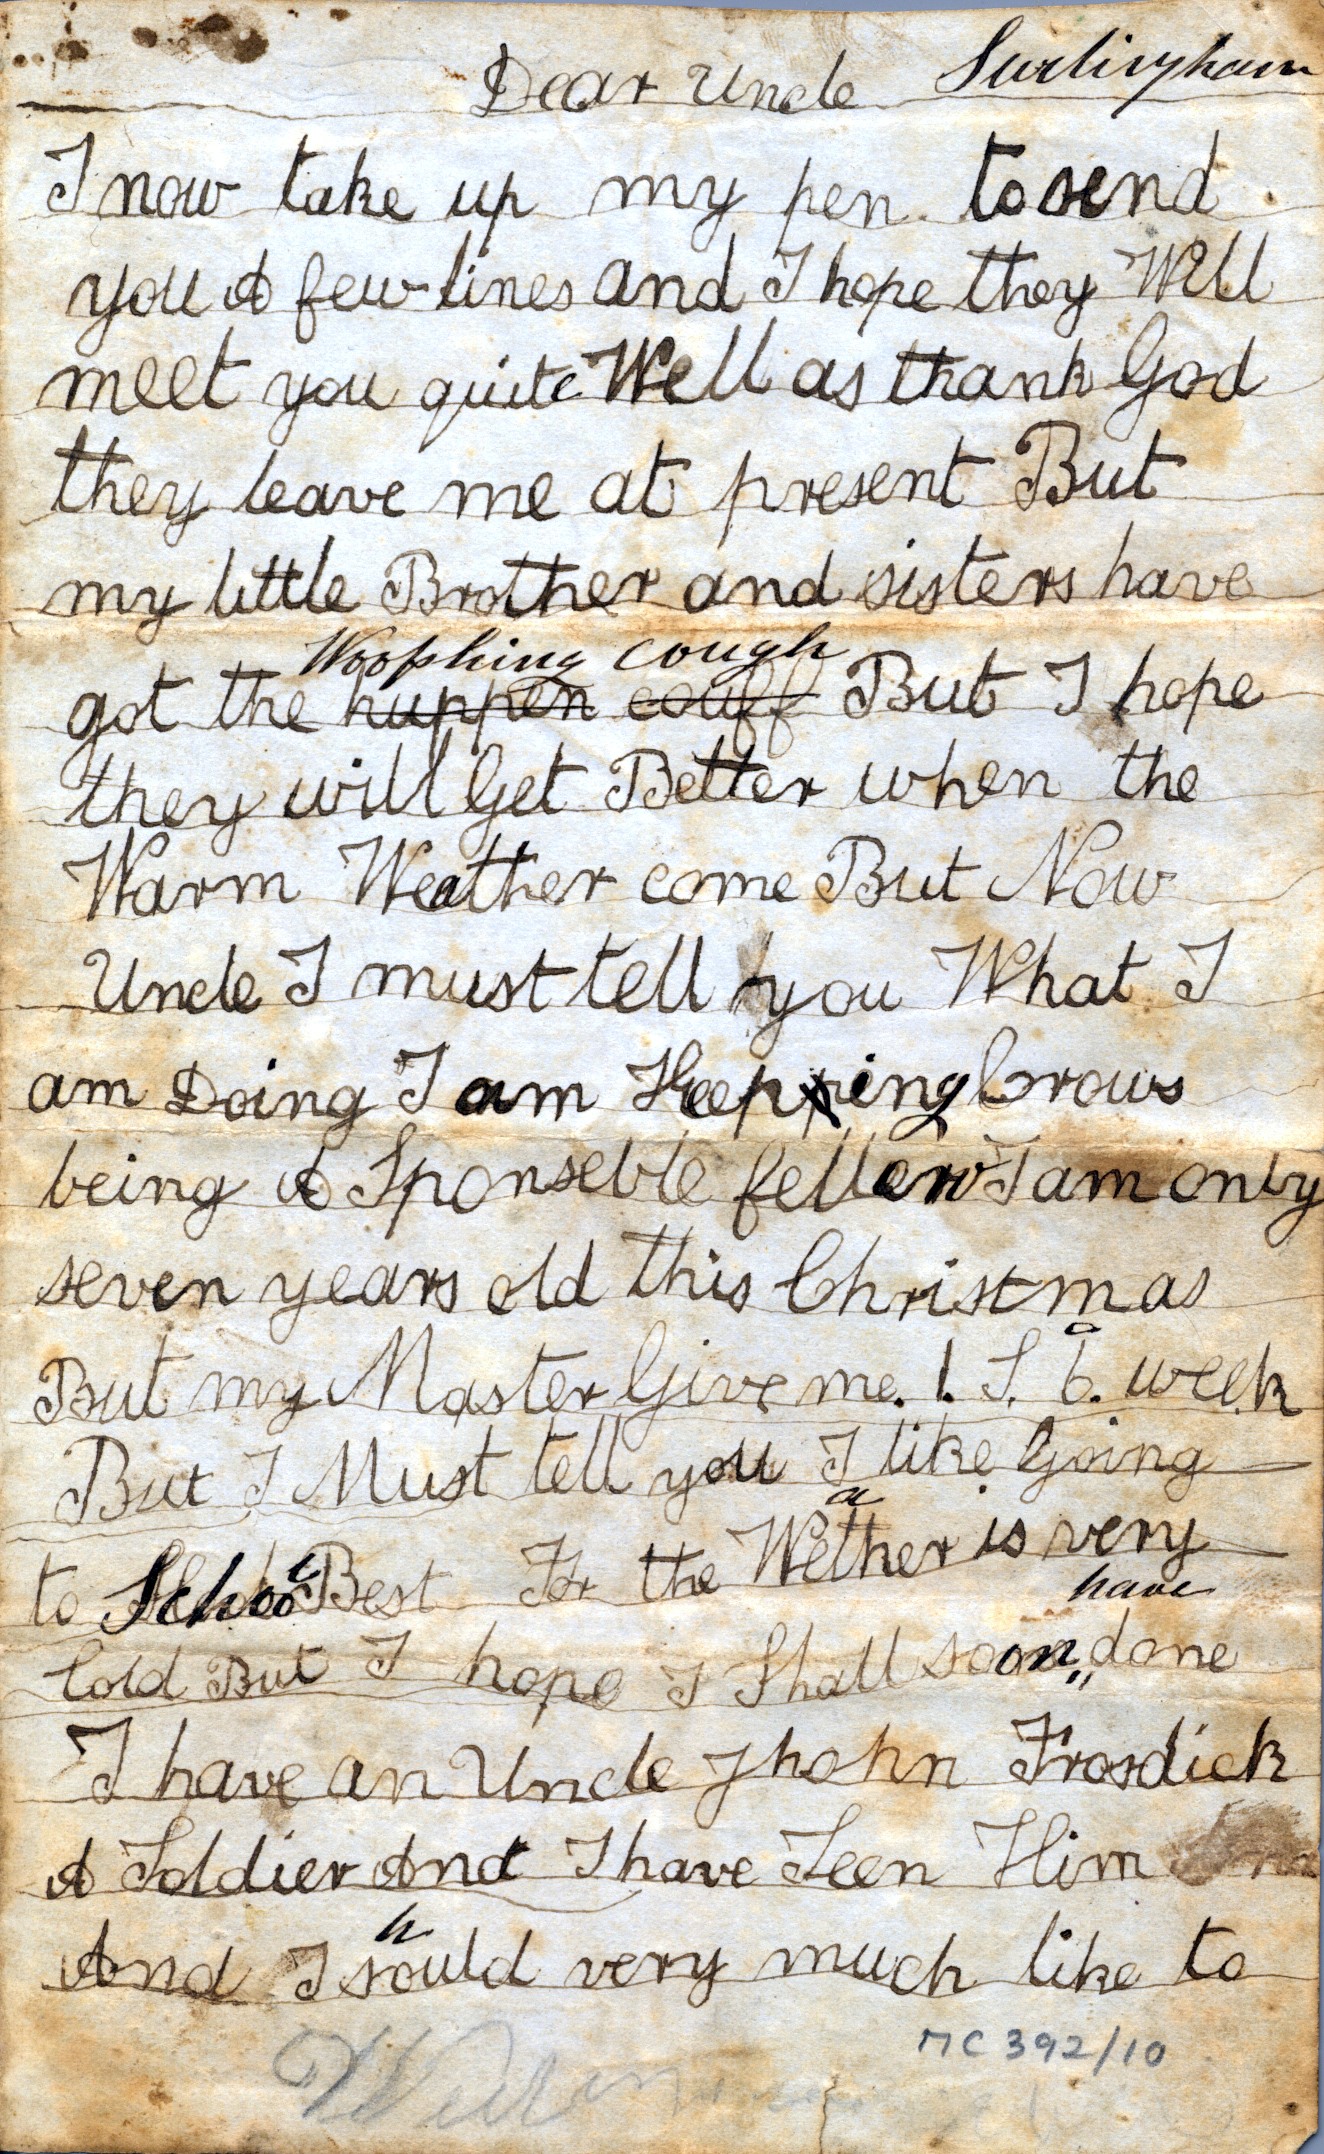 Surlingham
Dear Uncle
I now take up my pen. to send
you A few lines and I hope they Will
meet you quite Well as thank God
they leave me at present But
my little Brother and sisters have
Woophing cough
got the huppen couff But I hope
they will Get Better when the
Warm Weather come But Now
Uncle I must tell you What I
am Doing I am Keepping Crows
being A Sponseble fellow I am only
seven years old this Christmas
But my Master Give me. 1. S. 6. a week
But I Must tell you I like Going
to School Best For the Weather is very
have
Cold But I hope I Shall soon done
I have an Uncle Jhohn Frosdick
A Soldier And I have Seen Him
h
And I sould very much like to
MC 392/10